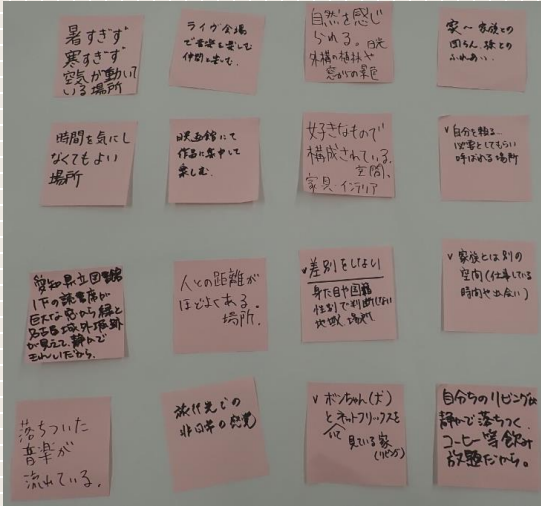 暑すぎず
寒すぎず
空気が動いて
いる場所
ライヴ会場
で音楽を楽しむ
仲間と楽しむ。
自然を感じ
られる。日光
外構の植栽や
窓からの景色
家〜家族との
団らん、猫との
ふれあい。
時間を気にし
なくてもよい
場所
映画館にて
作品に集中して
楽しむ。
好きなもので
構成されている。
空間、
家具、インテリア
v 自分を頼る…
必要としてもらい
呼ばれる場所
愛知県立図書館
1Fの読書席が
巨大な窓から緑と
名古屋城外堀跡
が見えて、静かで
きれいだから。
人との距離が
ほどよくある。
場所.
v 差別をしない
身た目や国籍
性別で判断しない
地域、場所
v 家族とは別の
空間(仕事している
時間や出会い)
落ちついた
音楽が
流れている。
旅行先での
非日常の感覚
v ボンちゃん(犬)
とネットフリックスを
見ている家
(リビング)
自分ちのリビングは
静かで落ちつく
コーヒー等飲み
放題だから。